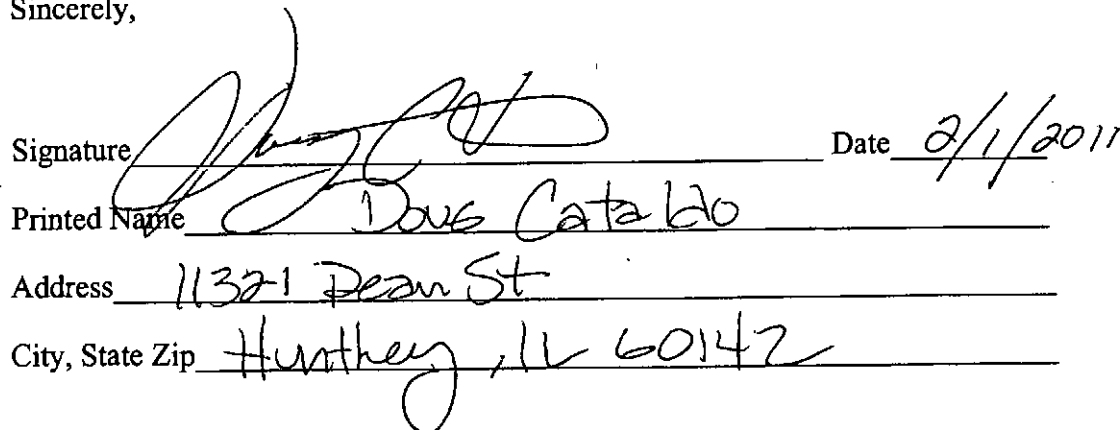 Sincerely,
Signature Date 2/1/2011
Printed Name Doug Cataldo
Address 11321 Dean St
City, State Zip Huntley, IL 60142